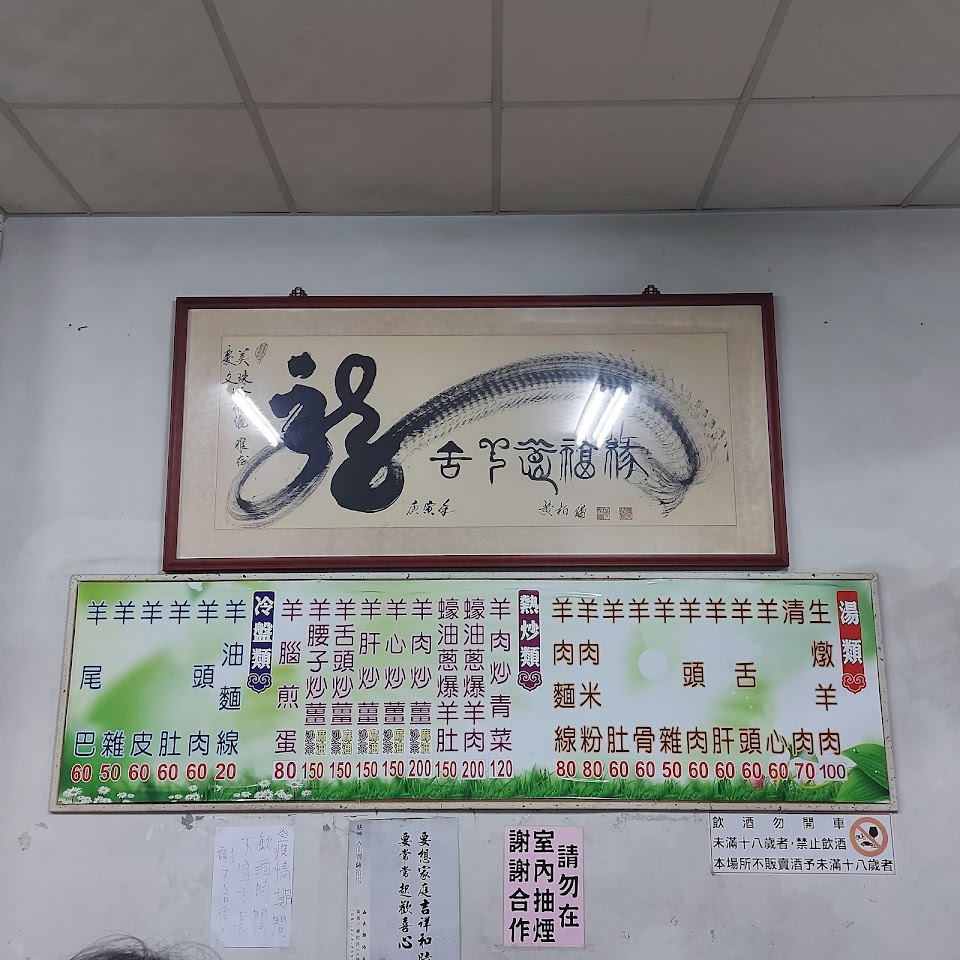 龍
緣福
庚寅年
湯類
生燉羊肉 100
清肉 70
羊心 60
羊舌頭 60
羊肝 60
羊頭肉 60
羊雜 50
羊骨 60
羊肚 60
羊肉米粉 80
羊肉麵線 80
熱炒類
羊肉炒青菜 120
蠔油蔥爆羊肉 200
蠔油蔥爆羊肚 150
羊肉炒薑 麻油 沙茶 200
羊心炒薑 麻油 沙茶 150
羊肝炒薑 麻油 沙茶 150
羊舌頭炒薑 麻油 沙茶 150
羊腰子炒薑 麻油 沙茶 150
羊腦煎蛋 80
冷盤類
羊油麵線 20
羊頭肉 60
羊肚 60
羊皮 60
羊雜 50
羊尾巴 60
飲酒勿開車
未滿十八歲者,禁止飲酒
本場所不販賣酒予未滿十八歲者
請勿在
室內抽煙
謝謝合作
要想家庭吉祥和
要常常起歡喜心
疫情期間